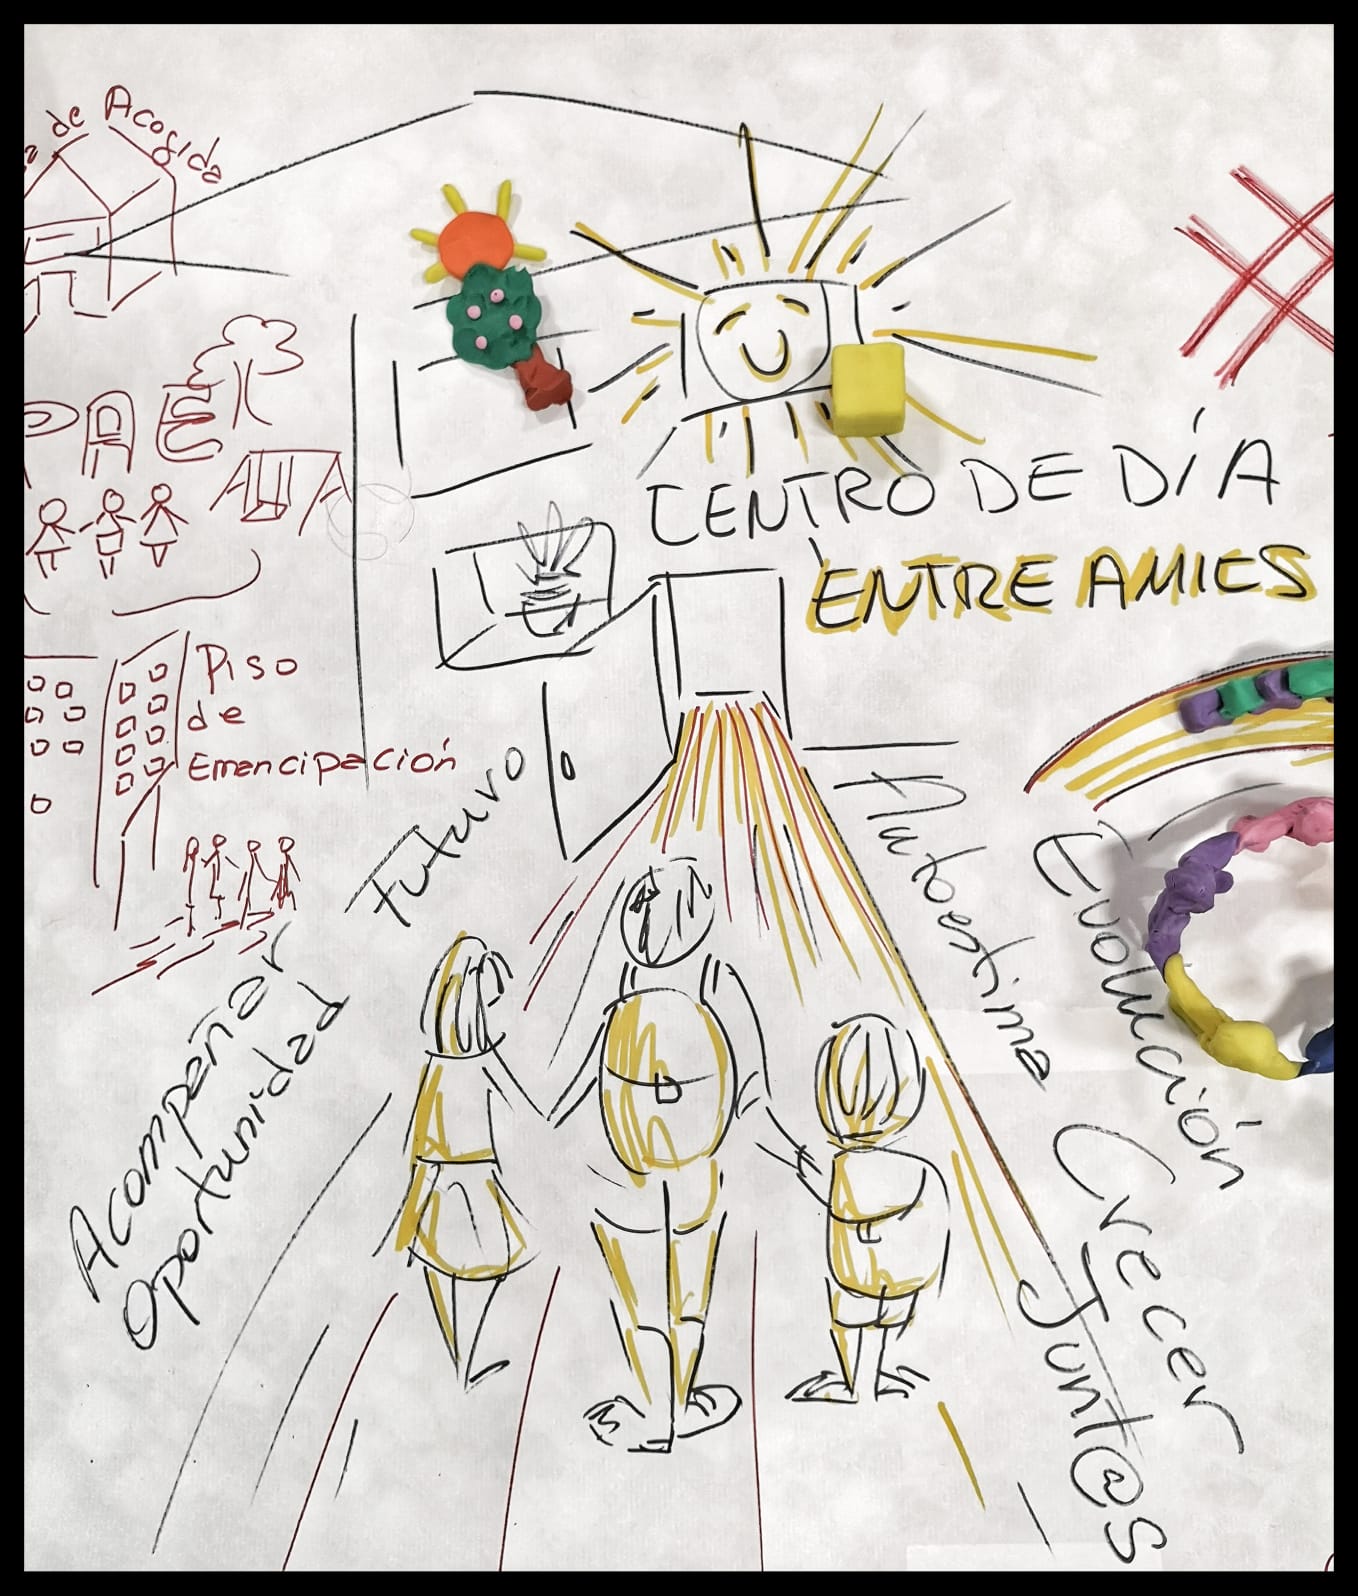 de Acogida
PAE
CENTRO DE DÍA
ENTRE AMICS
Piso
de
Emancipación
Futuro
Autoestima
Evolución
Acompañar
Oportunidad
Crecer
Junt@s